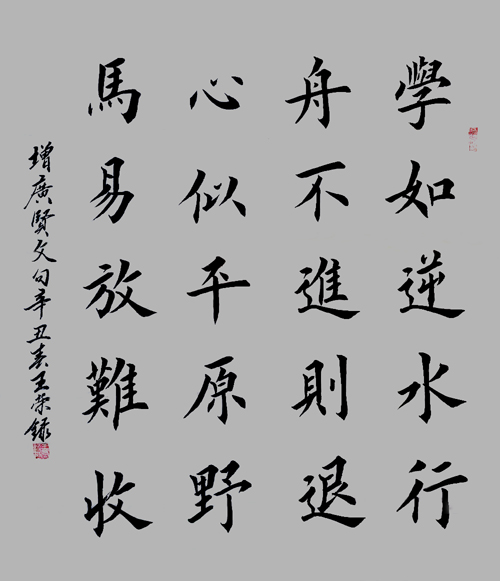 學如逆水行
舟不進則退
心似平原野
馬易放難收
增廣賢文句辛丑春王榮錄